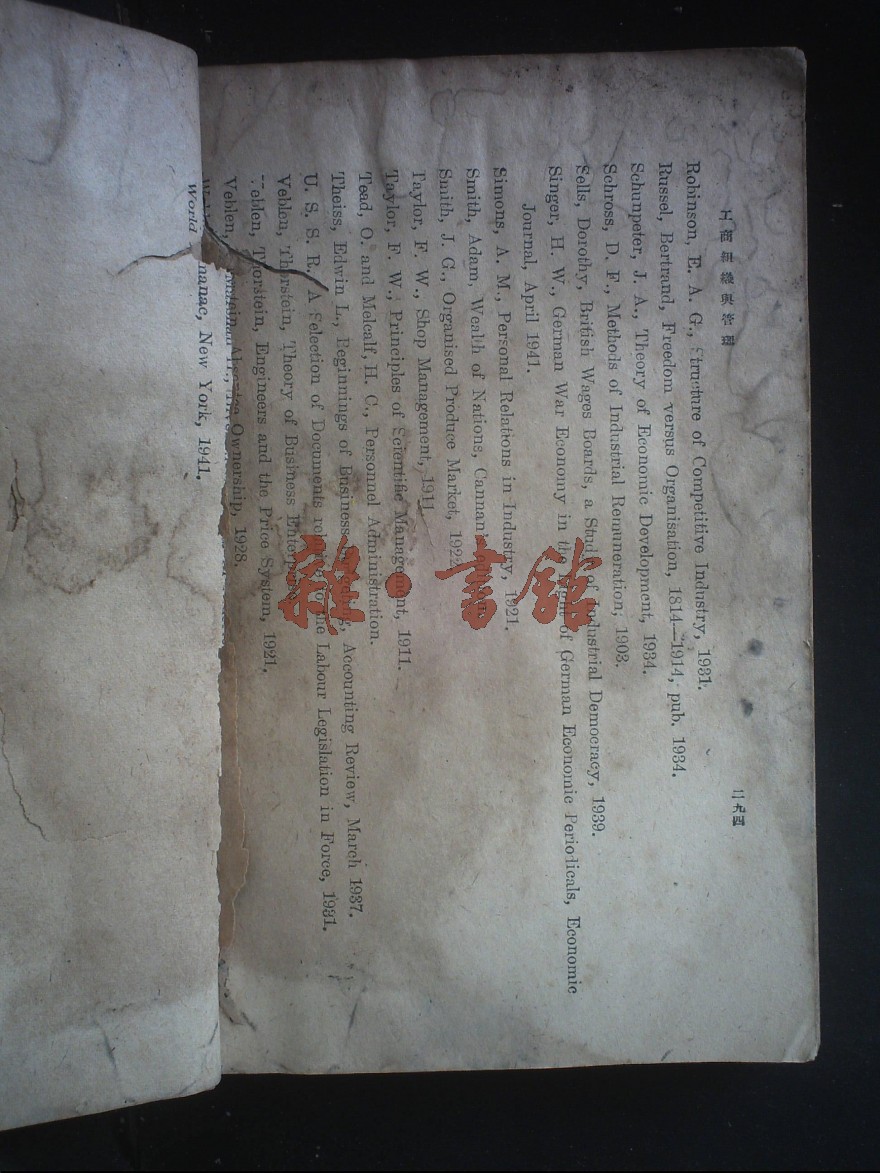 工組織與管理
二九四
Robinson, E. A. G., Structure of Competitive Industry, 1931.
Russel, Bertrand, Freedom versus Organisation, 1814—1914, pub. 1934.
Schunpeter, J. A., Theory of Economic Development, 1934.
Schross, D. F., Methods of Industrial Remuneration, 1903.
Sells, Dorothy, British Wages Boards, a Study of Industrial Democracy, 1939.
Singer, H. W., German War Economy in the Light of German Economic Periodicals, Economic
Journal, April 1941.
Simons, A. M., Personal Relations in Industry, 1921.
Smith, Adam, Wealth of Nations, Cannan
Smith, J. G., Organised Produce Market, 1922
Taylor, F. W., Shop Management, 1911
Taylor, F. W., Principles of Scientific Management, 1911.
Tead, O. and Melcalf, H. C., Personnel Administration.
Theiss, Edwin L., Beginnings of Business Accounting Review, March 1937.
U. S. S. R. A Selection of Documents relative to the Labour Legislation in Force, 1931.
Veblen, Thorstein, Theory of Business Enterprise
Veblen, Thorstein, Engineers and the Price System, 1921.
Veblen, Ownership, 1923.
World manac, New York, 1941.
書